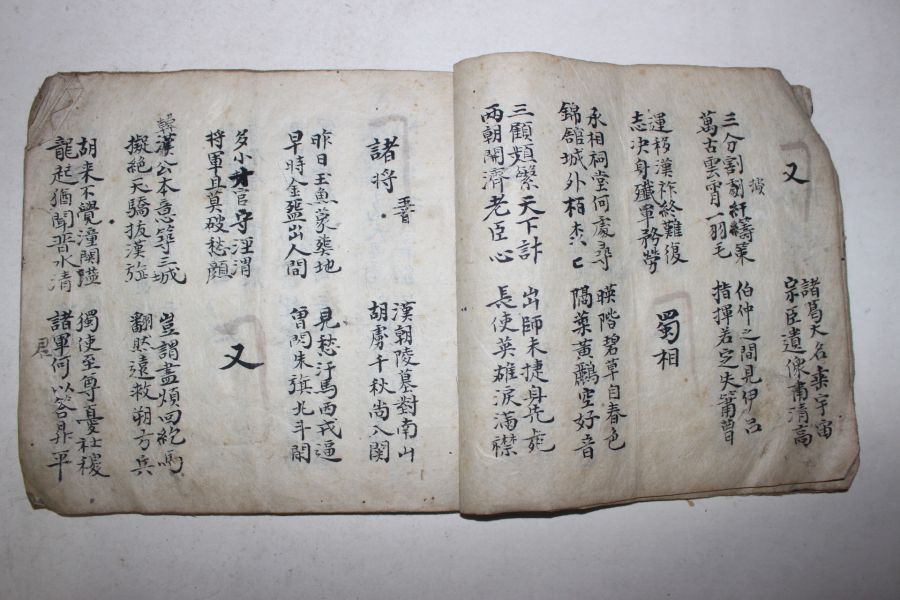 又
諸葛大名垂宇宙
宗臣遺像肅清高
三分割劇紆籌策
萬古雲霄一羽毛
伯仲之間見伊呂
指揮若定失蕭曺
運移漢祚終難復
志决身殲軍務勞
蜀相
承相祠堂何處尋
錦舘城外柏
映階碧草自春色
隔葉黃鸝空好音
三顧頻繁天下計
兩朝開濟老臣心
出師未捷身先死
長使英雄淚滿襟
諸將
漢朝陵墓對南山
胡虜千秋尚入関
昨日玉魚蒙葬地
早時金盌出人間
見愁汗馬西戎逼
曾閃朱旗北斗閒
多小才官守涇渭
將軍且莫破愁顔
又
韓
漢公本意築三城
擬絶天驕拔漢旌
豈謂盡煩回紇馬
翻然遠救朔方兵
胡来不覺潼関隘
龍起猶聞晋水清
獨使至尊憂社稷
諸軍何以答昇平